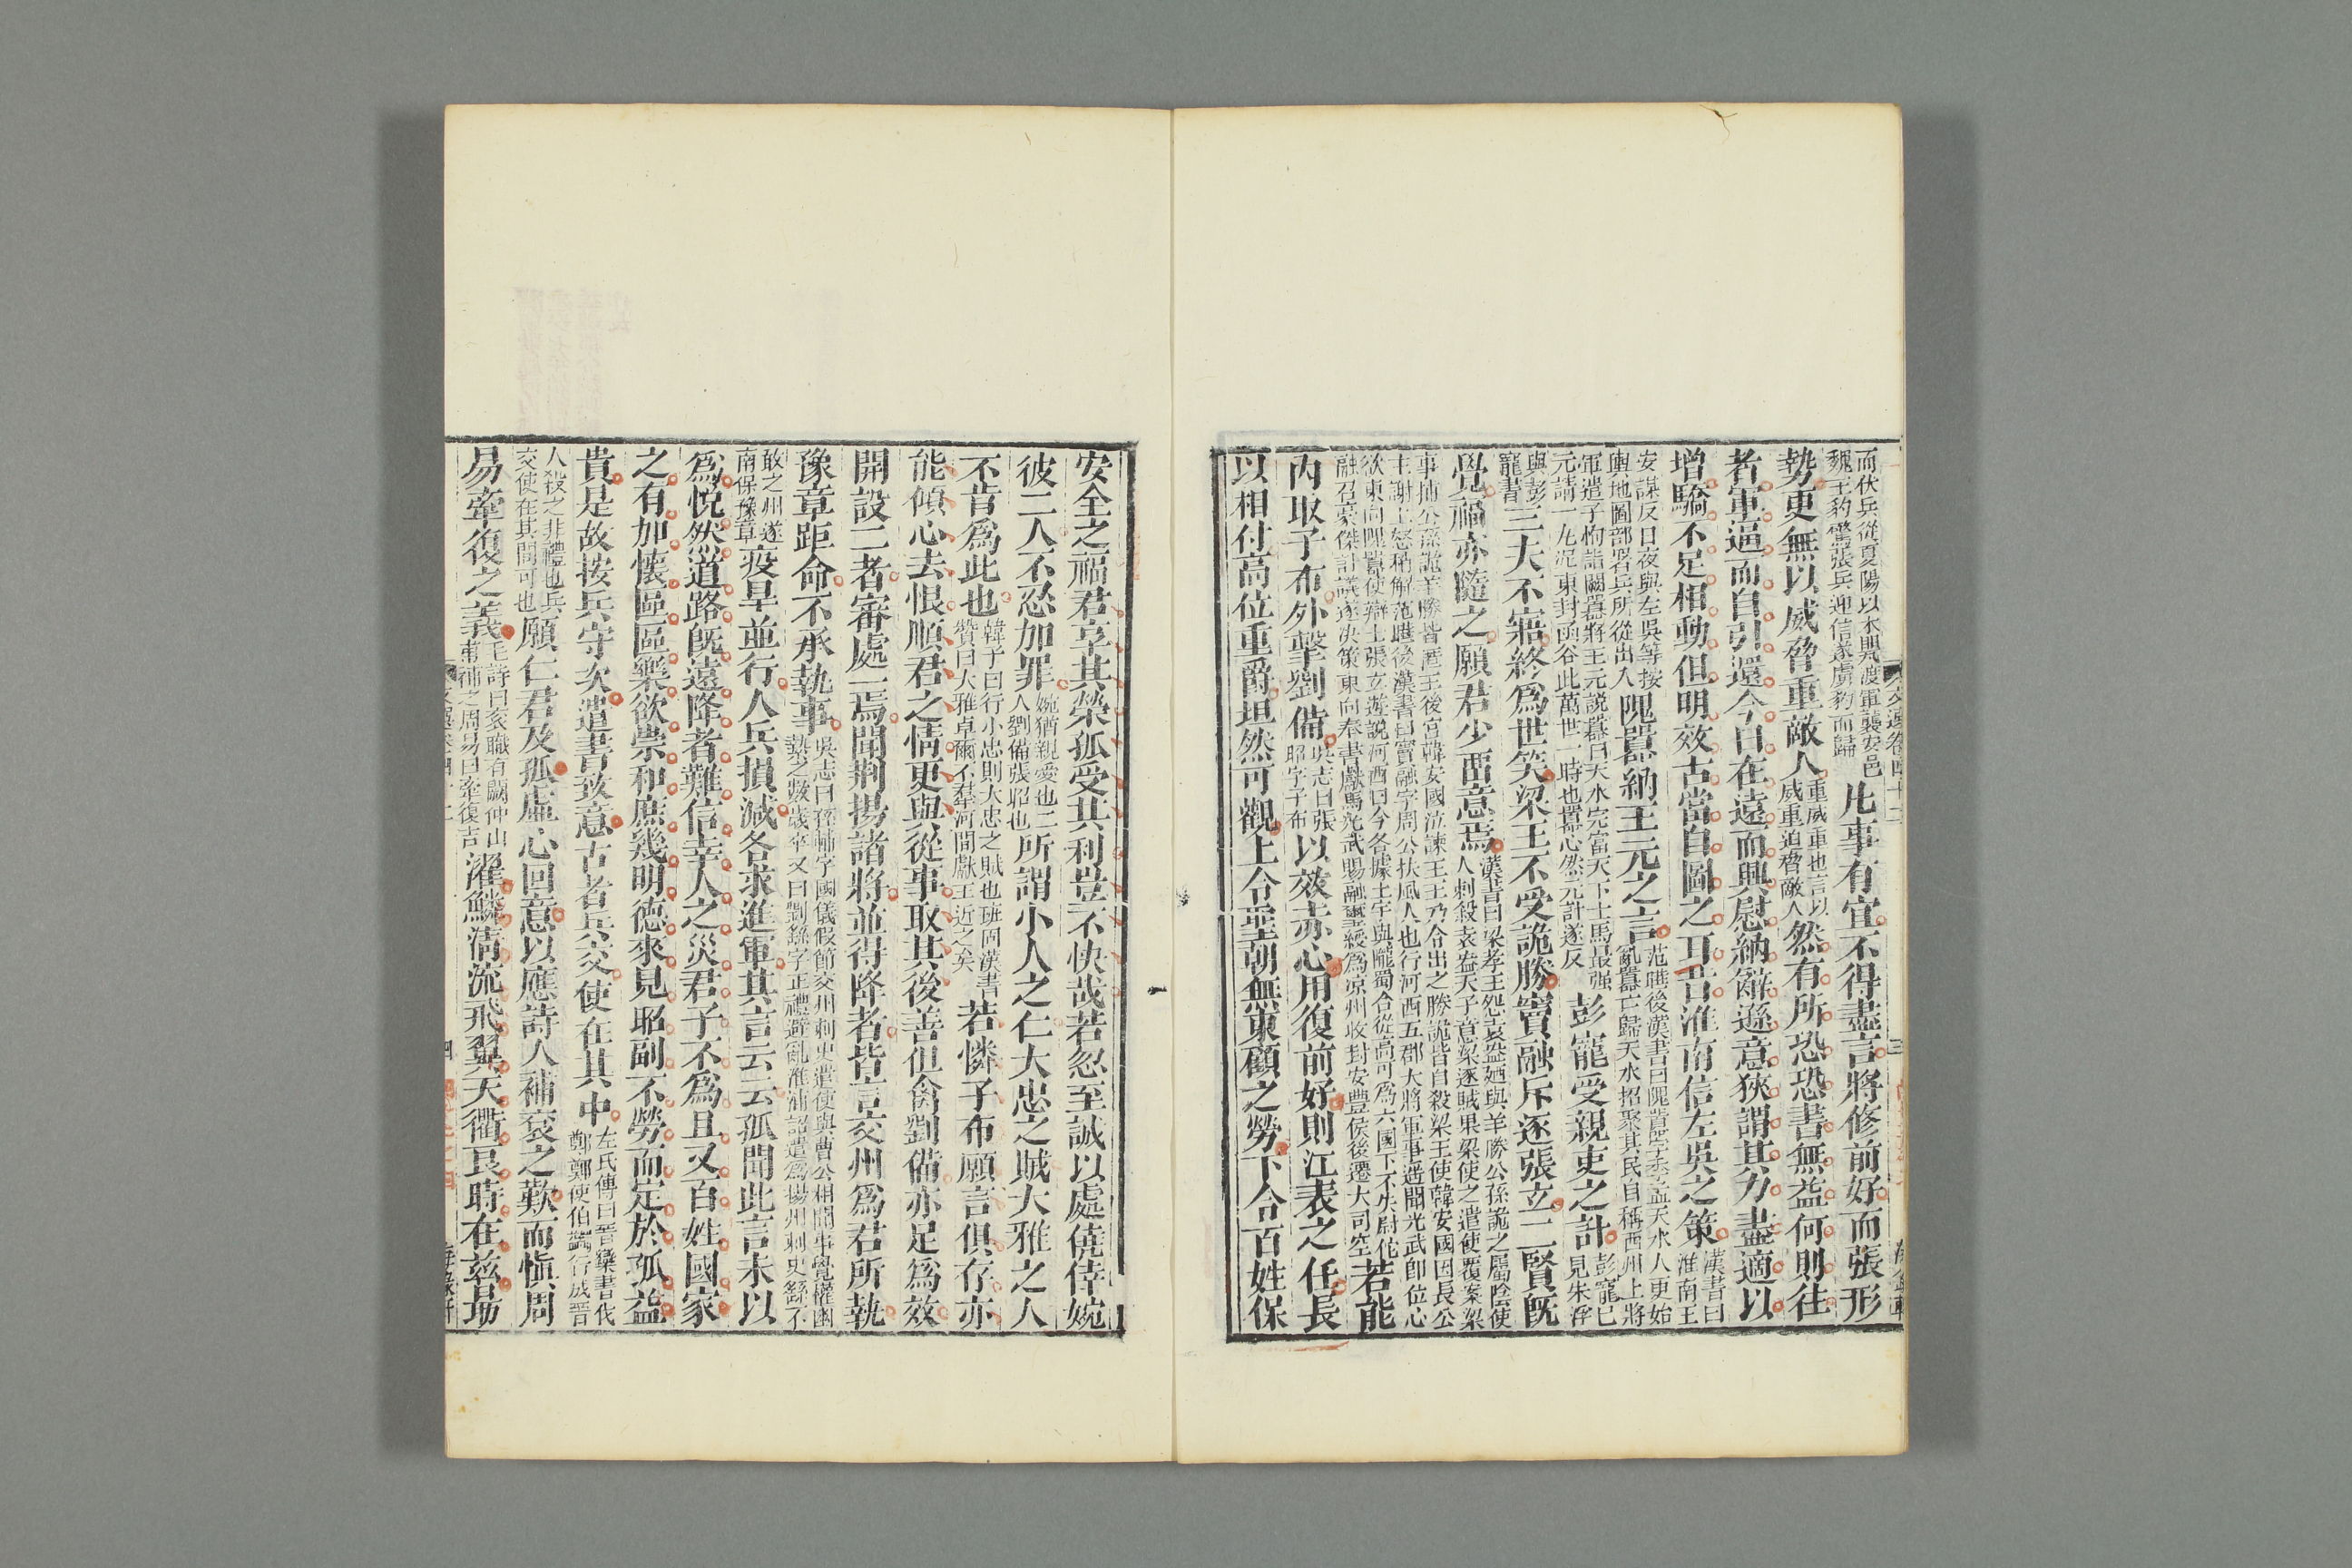 而伏兵從夏陽以木罌渡軍襲安邑
魏王豹驚張兵迎信遂虜豹而歸
此事有宜不得盡言將修前好而張形
勢更無以威脅重敵人
重威重也言以
威重迫脅敵人
然有所恐恐書無益何則往
者軍逼而自引還今日在遠而興慰納辭遜意狹謂其力盡適以
增驕不足相動但明效古當自圖之耳昔淮南信左吳之策
漢書曰
淮南王
安謀反日夜與左吳等按
輿地圖部署兵所從出入
隗囂納王元之言
范曄後漢書曰隗囂字季孟天水人更始
亂囂亡歸天水招聚其民自稱西州上將
軍遣子恂詣闕囂將王元說囂曰天水完富天下士馬最强
元請一丸泥東封函谷此萬世一時也囂心然元計遂反
彭寵受親吏之計
彭寵已
見朱浮
與彭
寵書
三夫不寤終爲世笑梁王不受詭勝竇融斥逐張玄二賢旣
覺福亦隨之願君少畱意焉
漢書曰梁孝王怨袁盎廼與羊勝公孫詭之屬陰使
人刺殺袁盎天子意梁逐賊果梁使之遣使覆案梁
事捕公孫詭羊勝皆匿王後宮韓安國泣諫王王乃令出之勝詭皆自殺梁王使韓安國因長公
主謝上怒稍解范曄後漢書曰竇融字周公扶風人也行河西五郡大將軍事遥聞光武卽位心
欲東向隗囂使辯士張玄遊說河西曰今各據土宇與隴蜀合從高可爲六國下不失尉佗
融召豪傑計議遂决策東向奉書獻馬光武賜融璽綬爲凉州牧封安豐侯後遷大司空
若能
內取子布外擊劉備
吳志曰張
昭字子布
以效赤心用復前好則江表之任長
以相付高位重爵坦然可觀上令聖朝無東顧之勞下令百姓保
安全之福君享其榮孤受其利豈不快哉若忽至誠以處僥倖婉
彼二人不忍加罪
婉猶親愛也二
人劉備張昭也
所謂小人之仁大忠之賊大雅之人
不肯爲此也
韓子曰行小忠則大忠之賊也班固漢書
贊曰大雅卓爾不羣河間獻王近之矣
若憐子布願言俱存亦
能傾心去恨順君之情更與從事取其後善但禽劉備亦足爲效
開設二者審處一焉聞荆揚諸將並得降者皆言交州爲君所執
豫章距命不承執事
吳志曰孫輔字國儀假節交州刺史遣使與曹公相聞事覺權幽
縶之數歲卒又曰劉繇字正禮避亂淮浦詔遣爲揚州刺史繇不
敢之州遂
南保豫章
疫旱並行人兵損減各求進軍其言云云孤聞此言未以
爲悅然道路旣遠降者難信幸人之災君子不爲且又百姓國家
之有加懷區區樂欲崇和庶幾明德來見昭副不勞而定於孤益
貴是故按兵守次遣書致意古者兵交使在其中
左氏傳曰晉欒書伐
鄭鄭使伯蠲行成晉
人殺之非禮也兵
交使在其間可也
願仁君及孤虛心回意以應詩人補袞之歎而愼周
易牽復之義
毛詩曰袞職有闕仲山
甫補之周易曰牽復吉
濯鱗淸流飛翼天衢良時在兹勗